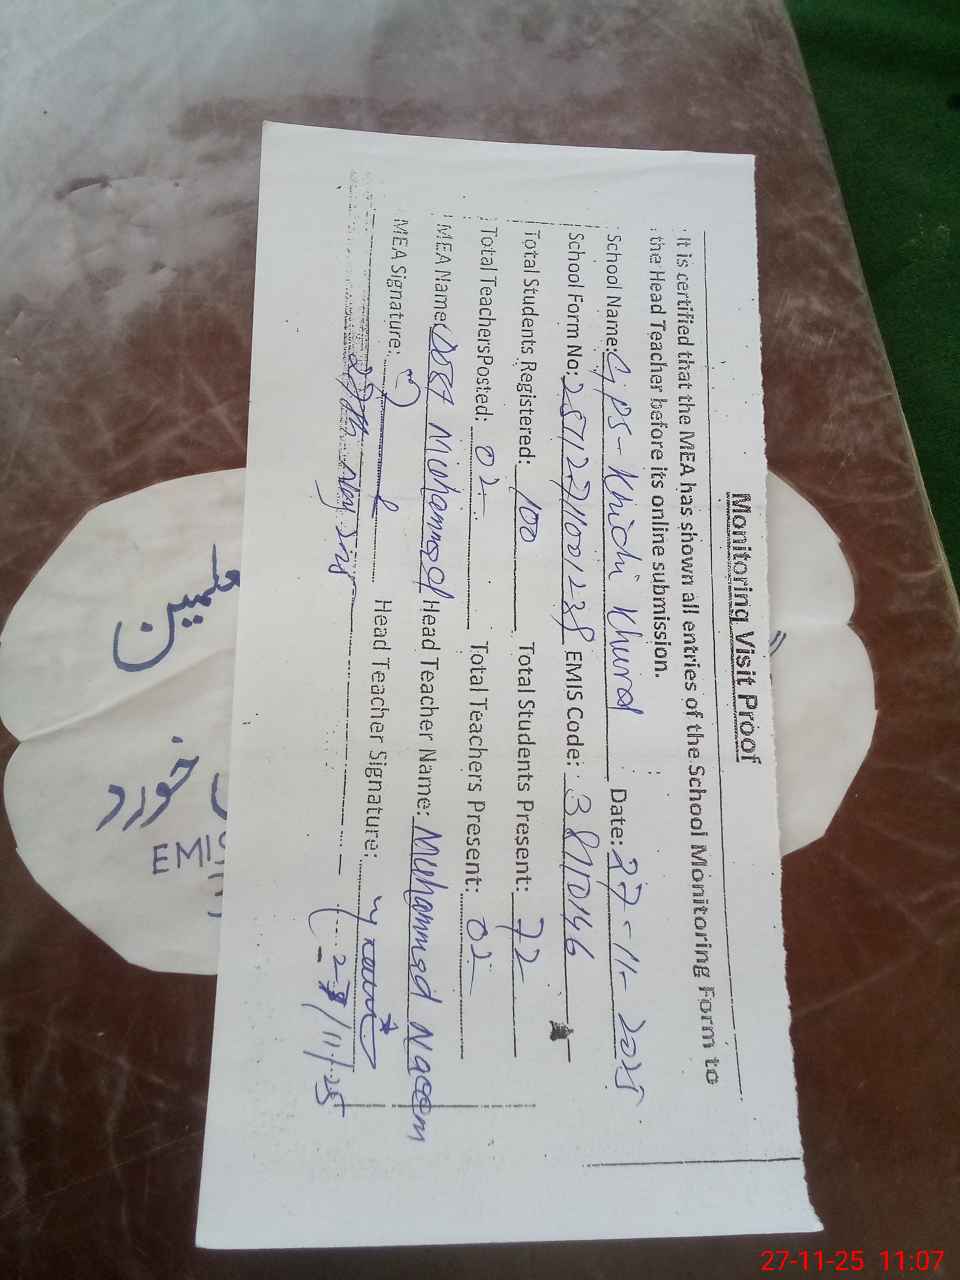 Monitoring Visit Proof
It is certified that the MEA has shown all entries of the School Monitoring Form to
the Head Teacher before its online submission.
School Name: GPS- Khichi Khurd Date: 27-11-2025
School Form No: EMIS Code: 38110146
Total Students Registered: 100 Total Students Present: 72
Total TeachersPosted: 02 Total Teachers Present: 02
MEA Name: Muhammad Head Teacher Name: Muhammad Naeem
MEA Signature: Head Teacher Signature:
27/11/25
خورد
EMIS
27-11-25 11:07